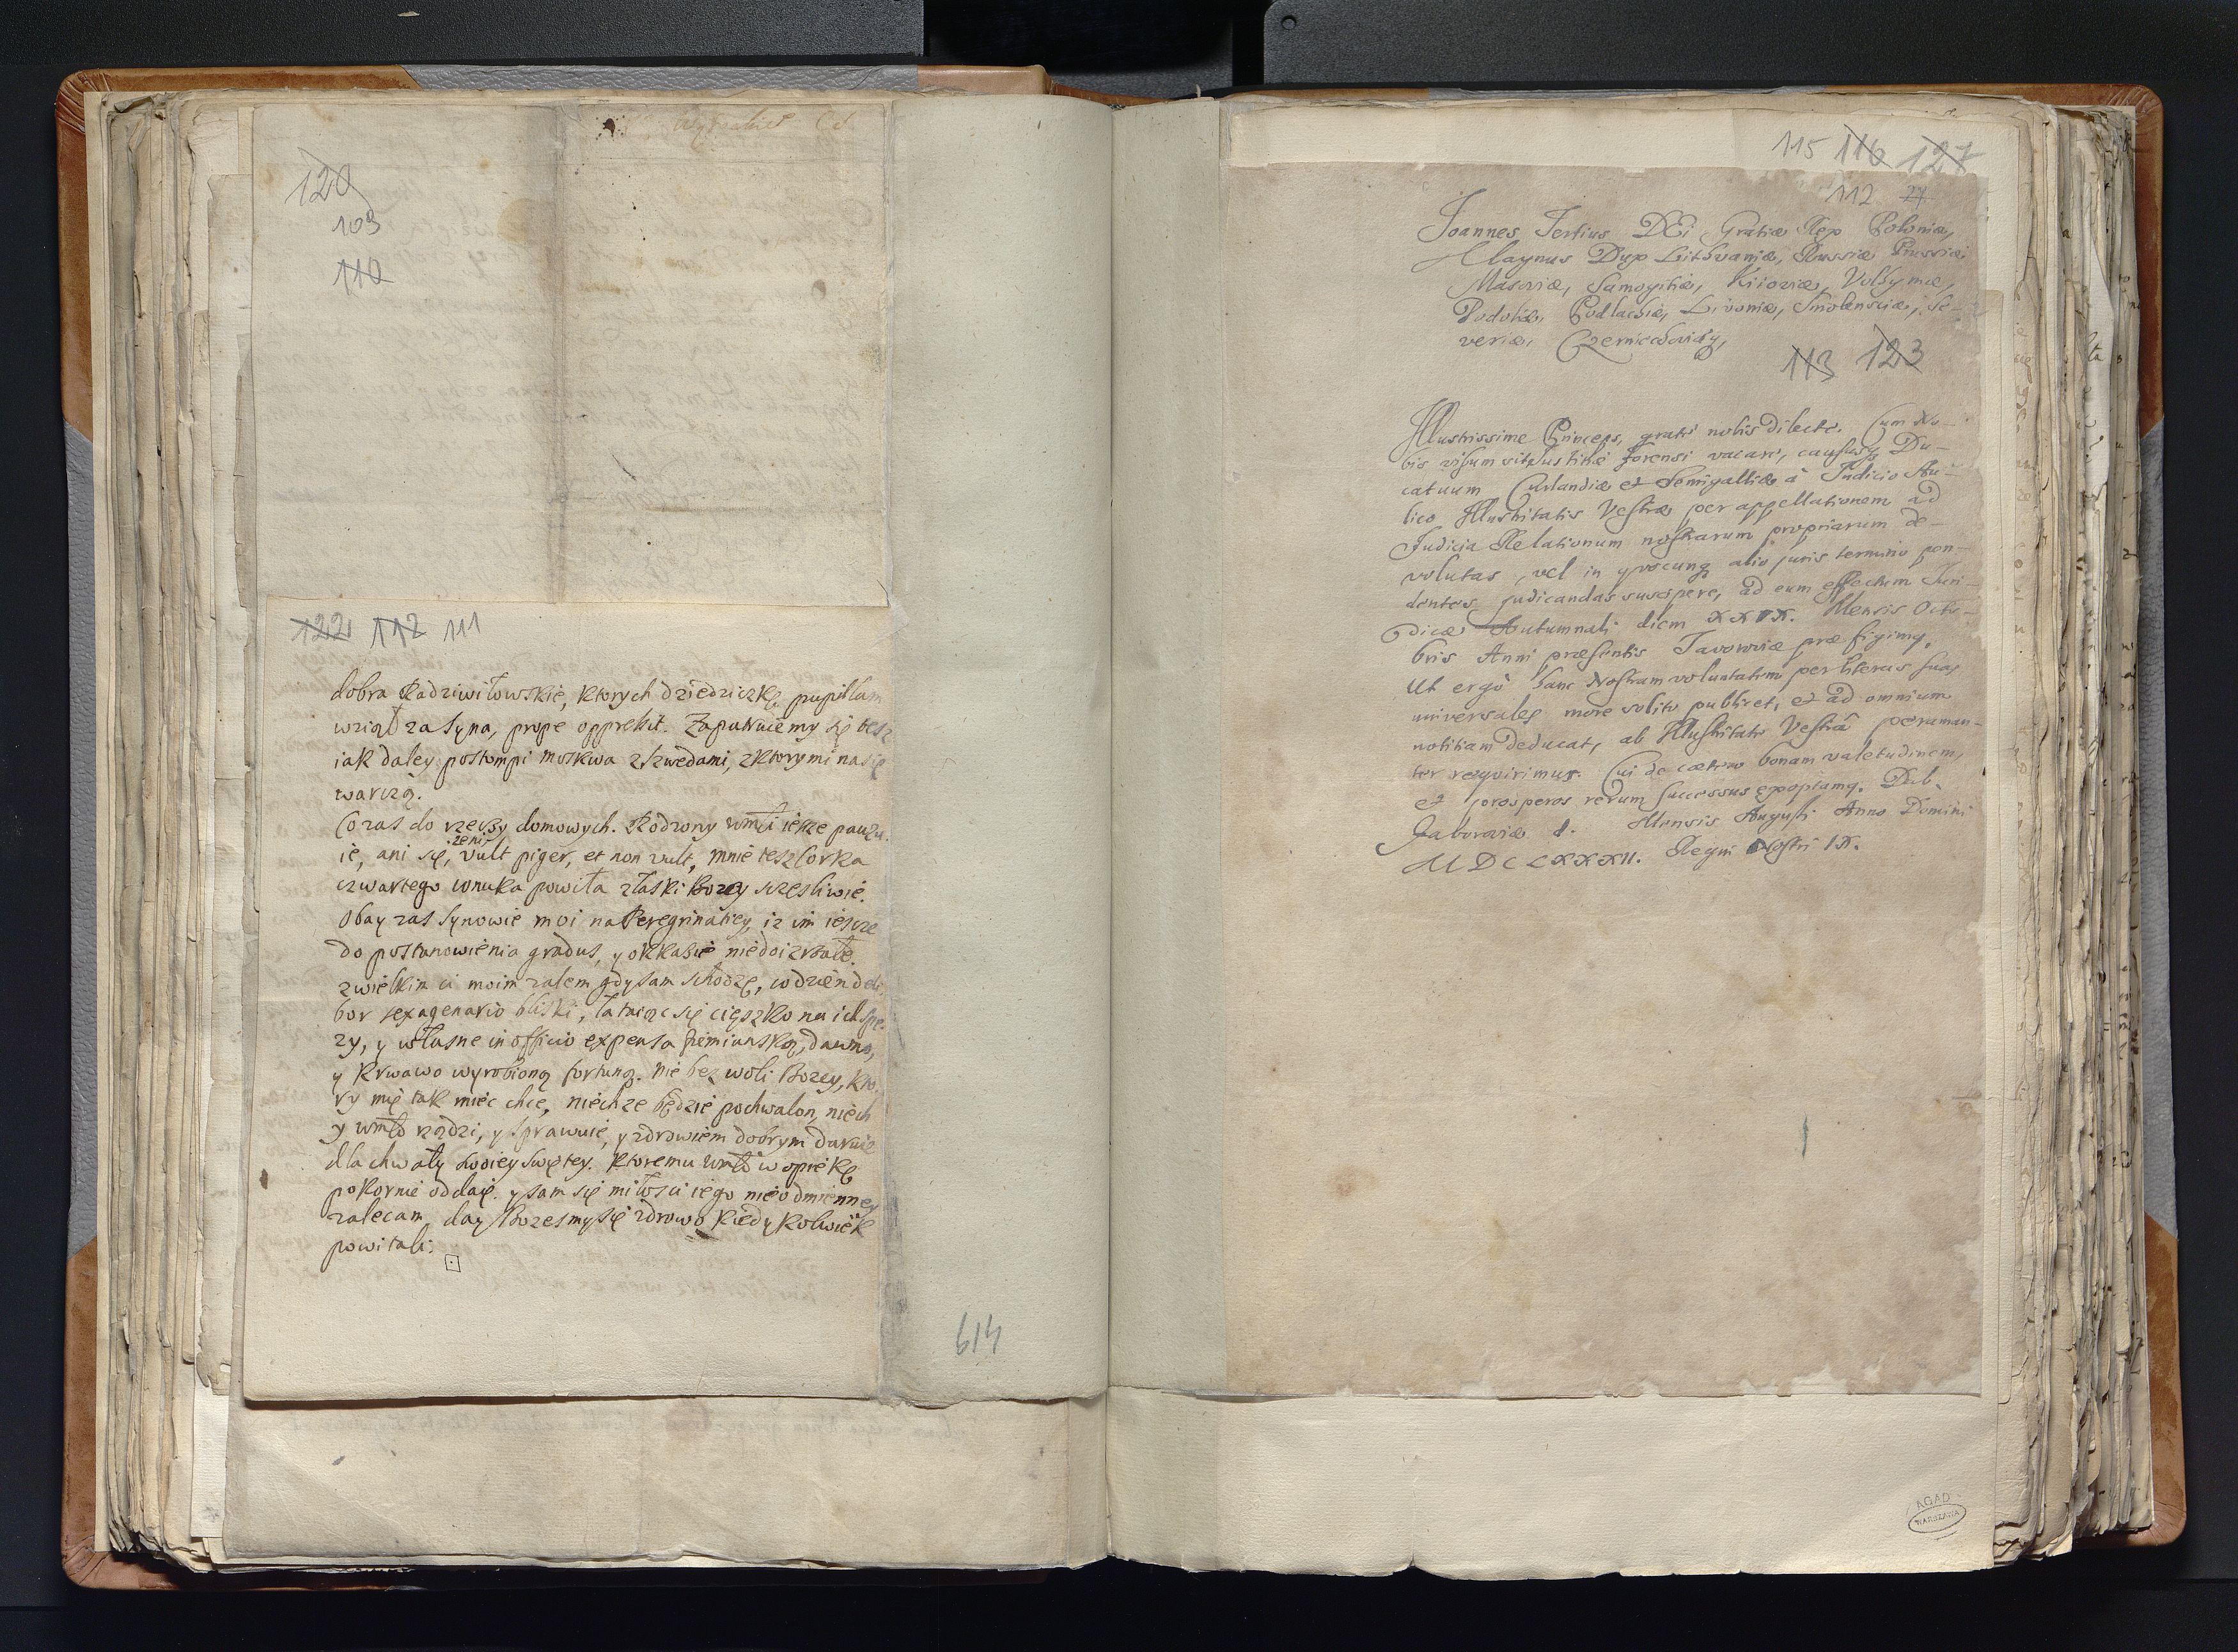 120
103
110
122 112 111
dobra Radziwiłowskie, ktorych dziedziczkę pupillam
wziął za syna, prope oppressit. Zapatruiemy się tesz
iak daley postompi moskwa z szwedami, z ktorymi na się
warczą.
Co zas do rzeczy domowych. Rodzony wmći iesze pauzu-
ie, ani się żeni, vult piger, et non vult, mnie tesz Corka
czwartego wnuka powiła z łaski Bozey szczesliwie.
Obay zas synowie moi na Peregrinatiey, iz im iescze
do postanowienia gradus, y okkasie nie doizrzałe.
z wielkim ci moim zalem gdy sam schodzę, co dzien de-
bor sexagenario bliski, łamiąc się cięszko na ich spe-
zy, y własne in officio expensa ziemianską, dawną,
y krwawo wyrobioną fortuną. nie bez woli Bozey, kto-
ry mię tak miec chce, niechze będzie pochwalon, niech
y wmći rządzi, y sprawuie, y zdrowiem dobrym daruie
dla chwały swoiey swiętey. ktoremu wmći w opiekę
pokornie oddaię. y sam się miłosci iego nieodmienney
zalecam, day Boze smy się zdrowo kiedykolwiek
powitali.
614
115 116 127
112 27
Joannes Tertius DEi Gratiæ Rex Poloniæ,
Magnus Dux Lithvaniæ, Russiæ Prussiæ,
Masoviæ, Samogitiæ, Kiioviæ, Volhyniæ,
Podoliæ, Podlachiæ, Livoniæ, Smolensciæ, Se-
veriæ, Czerniechoviæq,
113 123
Illustrissime Princeps, grate nobis dilecte. Cum No-
bis visum sit Justitiæ forensi vacare, causasq Du-
catuum Curlandiæ et Semigalliæ à Judicio Au-
lico Illustritatis Vestræ per appellationem ad
Judicia Relationum nostrarum propriarum de-
volutas, vel in quocunq alio juris termino pen-
dentes judicandas suscipere, ad eum effectum Juri-
dicæ Autumnali diem XXIX. Mensis Octo-
bris Anni præsentis Javoroviæ præfigimq.
Ut ergò hanc Nostram voluntatem per literas suas
universales more solito publicet, et ad omnium
notitiam deducat, ab Illustritate Vestrâ peraman-
ter requirimus. Cui de cætero bonam valetudinem,
et prosperos rerum successus exoptamq. Dab.
Jaboroviæ d. Mensis Augusti Anno Domini
MDCLXXXII. Regni Nostri IX.
AGAD
WARSZAWA